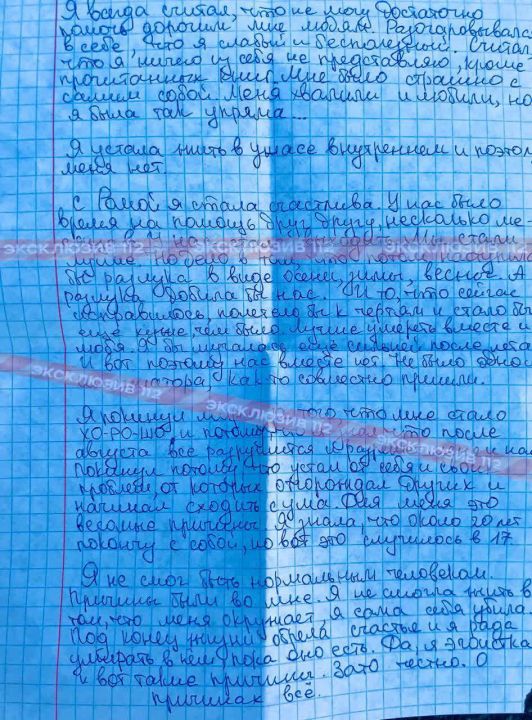 Я всегда считал, что не могу достаточно
помочь дорогим мне людям. Разочаровывался
в себе, что я слабый и бесполезный. Считал,
что я ничего из себя не представляю, кроме
прочитанных книг. Мне было страшно с
самим собой. Меня хвалили и любили, но
я была так упряма...
Я устала жить в ужасе внутреннем и поэтом
меня нет.
С Ромой я стала счастлива. У нас было
время на помощь друг другу, несколько ме-
ЭКСКЛЮЗИВ 112 ЭКСКЛЮЗИВ 112 ЭКСКЛЮЗИВ 112
бы разлука в виде осени, зимы, весной. А
разлука добила бы нас. И то, что сейчас
исправилось, полетело бы к чертям и стало бы
ещё хуже, чем было. Лучше умереть вместе
любя. а бы мучалась ещё сильней после лета
И вот поэтому нас вместе нет. Не было
как-то совместно пришли.
ЭКСКЛЮЗИВ 112 ЭКСКЛЮЗИВ 112 ЭКСКЛЮЗИВ 112
Я покинул того что мне стало
ХО-РО-ШО и потому что после
августа все разрушится и разрушит и нас
Покинул потому что устал от себя и своих
проблем, от которых ограждал других и
начинал сходить с ума. Для меня это
весомые причины. Я знала, что около 20 лет
покончу с собой, но вот это случилось в 17.
Я не смог быть нормальным человеком.
Причины были во мне. Я не смогла жить в
том, что меня окружает, я сама себя убила
Под конец жизни обрела счастье и я рада
умирать в нём, пока оно есть. Да, я эгоистка
И вот такие причины. Зато честно. О
причинах всё.